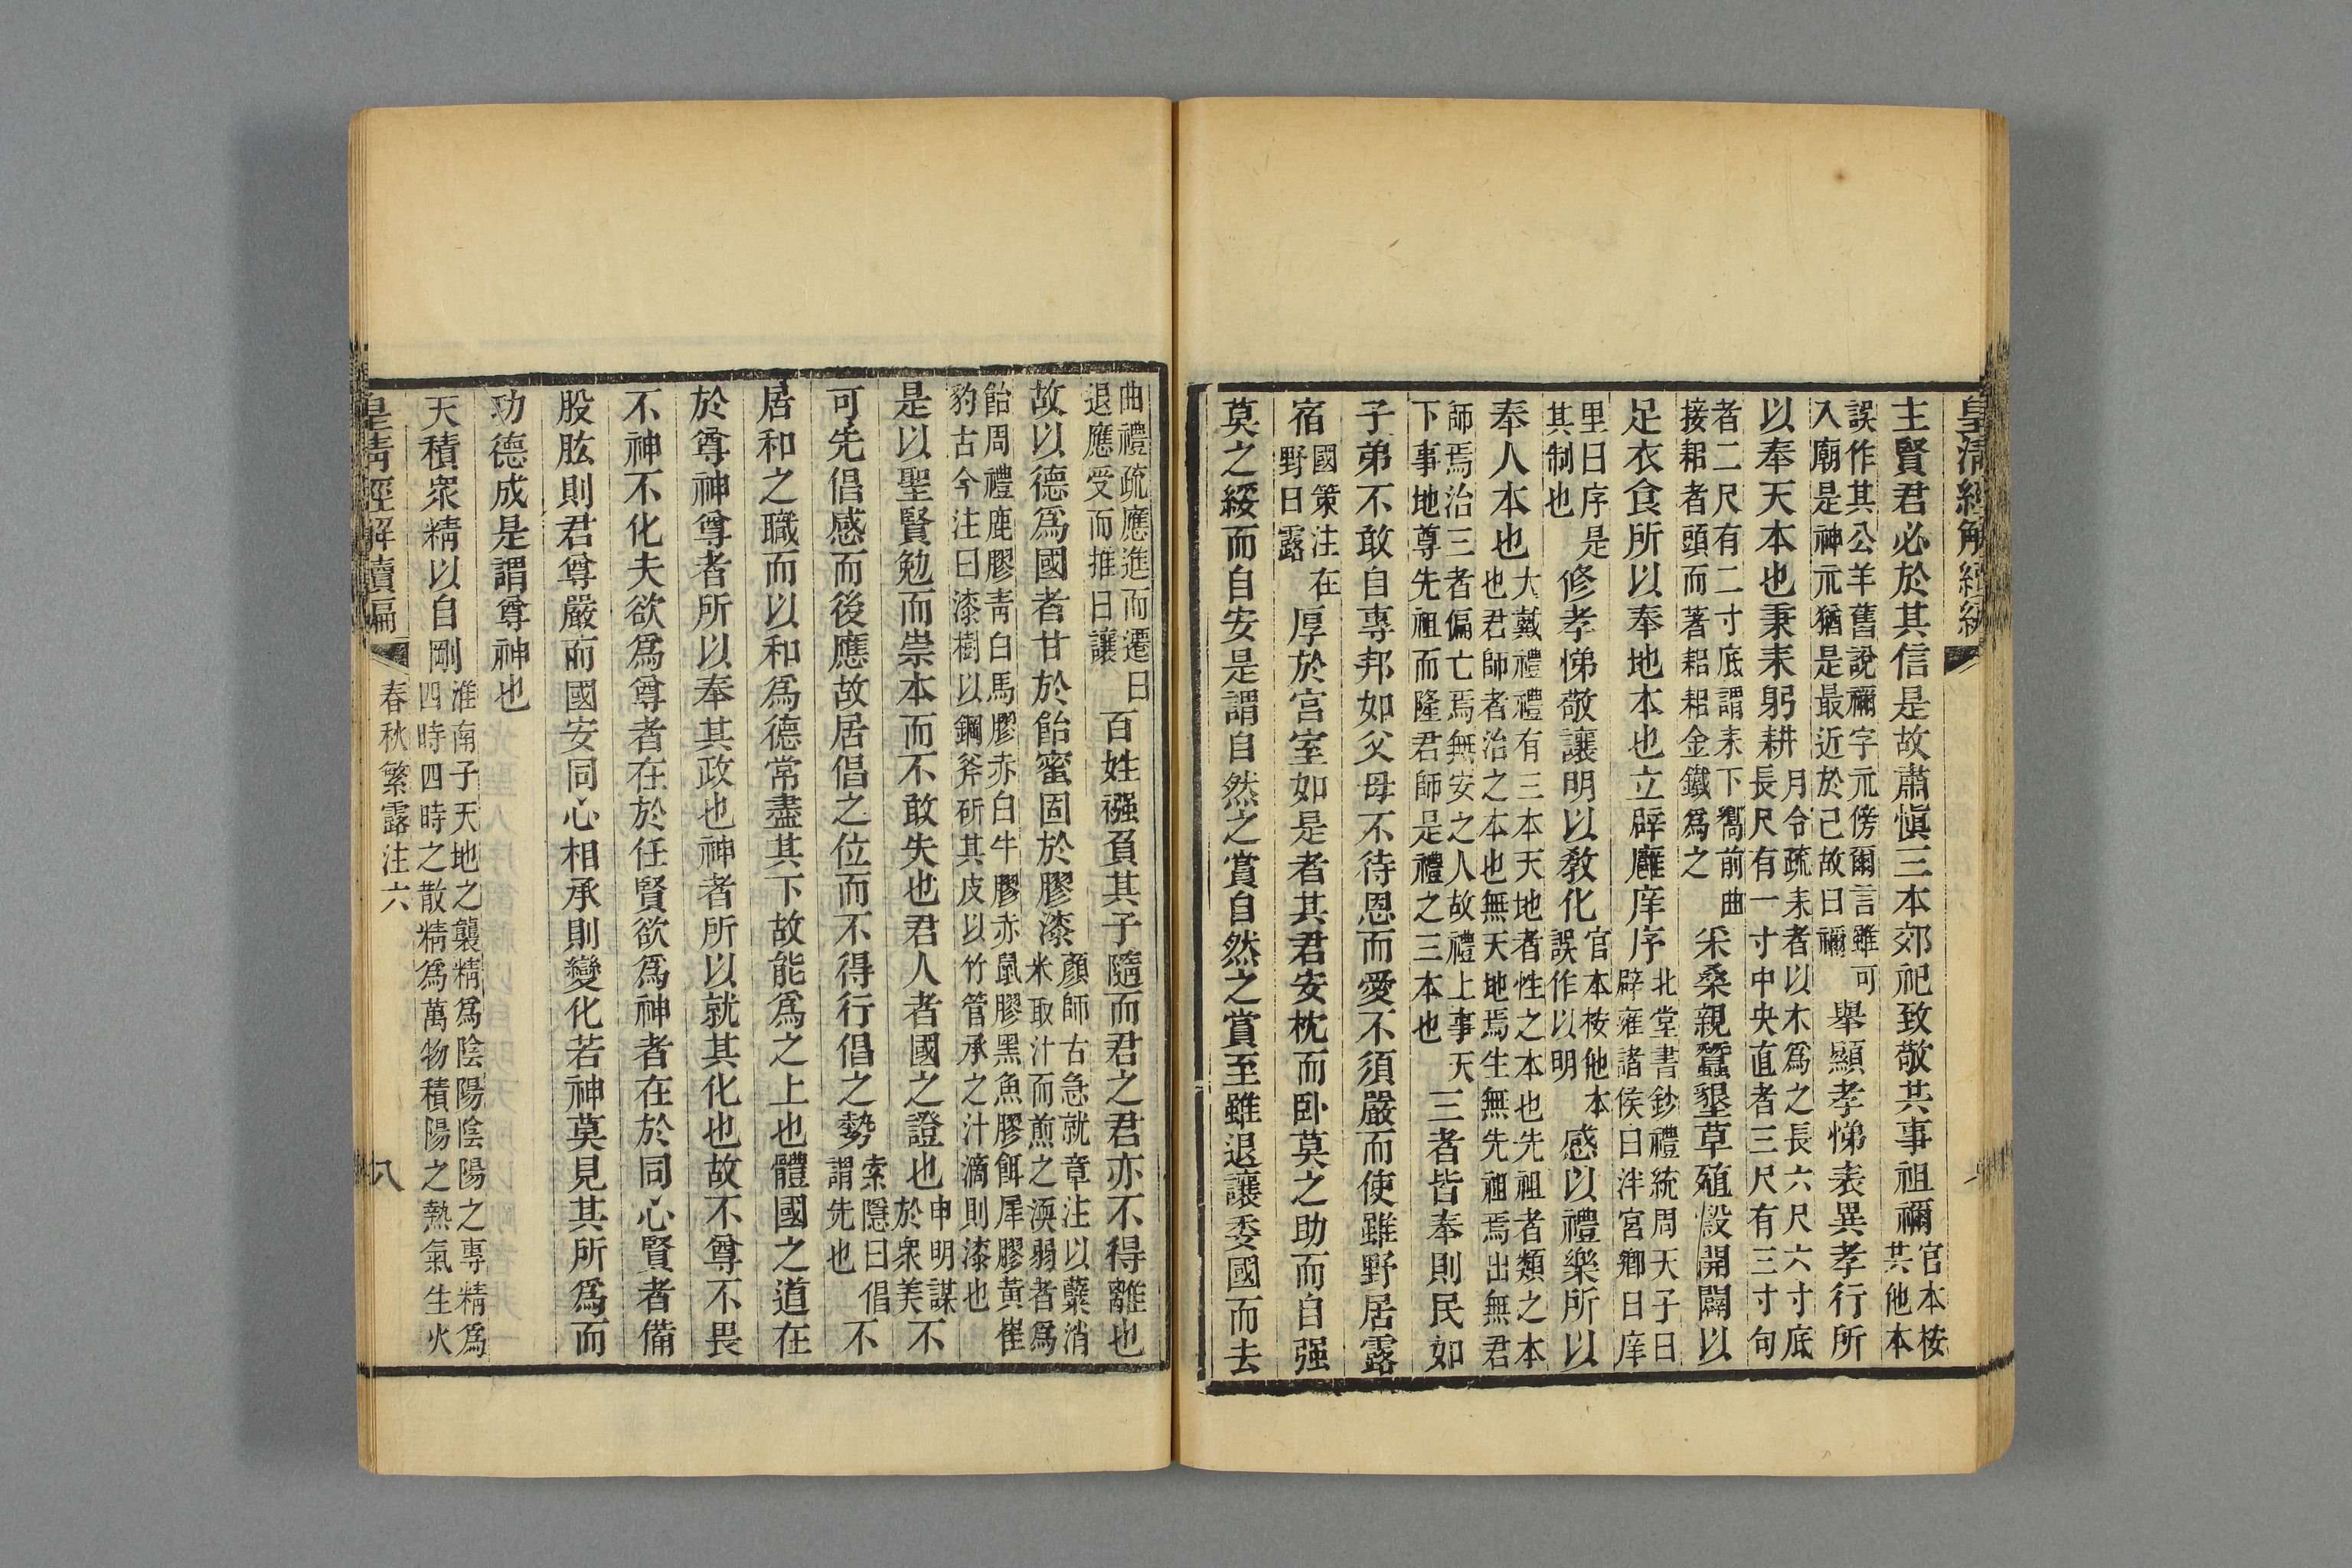 皇清經解續編
主賢君必於其信是故肅愼三本郊祀致敬共事祖禰官本桉共他本
誤作其公羊舊說禰字示傍爾言雖可入廟是神示猶是最近於己故曰禰舉顯孝悌表異孝行所
以奉天本也秉耒躬耕月令疏耒者以木爲之長六尺六寸底長尺有一寸中央直者三尺有三寸句
者二尺有二寸底謂耒下嚮前曲接耜者頭而著耜耜金鐵爲之采桑親蠶墾草殖穀開闢以
足衣食所以奉地本也立辟廱庠序北堂書鈔禮統周天子曰辟雍諸侯曰泮宮鄉曰庠
里曰序是其制也修孝悌敬讓明以敎化官本桉他本誤作以明感以禮樂所以
奉人本也大戴禮禮有三本天地者性之本也先祖者類之本也君師者治之本也無天地焉生無先祖焉出無君
師焉治三者偏亡焉無安之人故禮上事天下事地尊先祖而隆君師是禮之三本也三者皆奉則民如
子弟不敢自專邦如父母不待恩而愛不須嚴而使雖野居露
宿國策注在野曰露厚於宮室如是者其君安枕而卧莫之助而自强
莫之綏而自安是謂自然之賞自然之賞至雖退讓委國而去
曲禮疏應進而遷曰退應受而推曰讓百姓襁負其子隨而君之君亦不得離也
故以德爲國者甘於飴蜜固於膠漆顏師古急就章注以蘗消米取汁而煎之渜弱者爲
飴周禮鹿膠靑白馬膠赤白牛膠赤鼠膠黑魚膠餌犀膠黃崔豹古今注曰漆樹以鋼斧斫其皮以竹管承之汁滴則漆也
是以聖賢勉而崇本而不敢失也君人者國之證也申明謀於衆美不
可先倡感而後應故居倡之位而不得行倡之勢索隱曰倡謂先也不
居和之職而以和爲德常盡其下故能爲之上也體國之道在
於尊神尊者所以奉其政也神者所以就其化也故不尊不畏
不神不化夫欲爲尊者在於任賢欲爲神者在於同心賢者備
股肱則君尊嚴而國安同心相承則變化若神莫見其所爲而
功德成是謂尊神也
天積衆精以自剛淮南子天地之襲精爲陰陽陰陽之專精爲四時四時之散精爲萬物積陽之熱氣生火
皇淸經解續編 春秋繁露注六 八